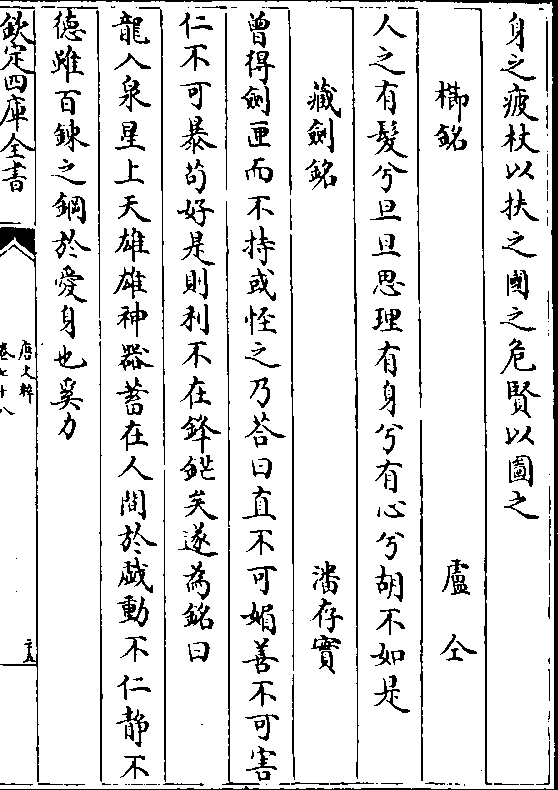 身之疲杖以扶之國之危賢以圖之
櫛銘 盧仝
人之有髮兮旦旦思理有身兮有心兮胡不如是
藏劍銘 潘存實
曾得劍匣而不持或恠之乃荅曰直不可媚善不可害
仁不可暴茍好是則利不在鋒鋩矣遂為銘曰
龍入泉星上天雄雄神器蓄在人間於戯動不仁静不
德雖百鍊之鋼於愛身也奚力
欽定四庫全書
唐文粹
卷七十八
二五